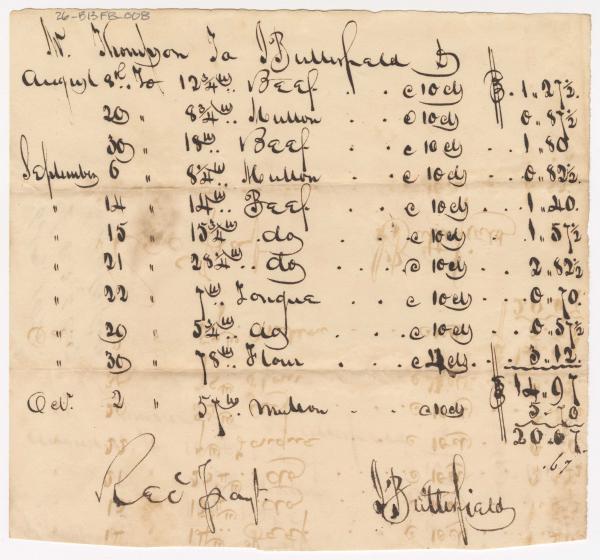 26-B13FB-008
W. Thompson To J Butterfield Dr
August 8th To 12 3/4 lb.. Beef . . c 10cts $ 1.. 27½.
20 " 8 3/4 lb.. Mutton . . c 10cts . . 0.. 87½
30 " 18 lb.. Beef . . c 10cts . . 1.. 80
September 6 " 8 1/4 lb.. Mutton . . c 10cts . . 0.. 82½.
" 14 " 14 lb.. Beef . . c 10cts . . 1.. 40.
" 15 " 15 3/4 lb.. do . . c 10cts . . 1.. 57½
" 21 " 28 1/4 lb.. do . . c 10cts . . 2.. 82½
" 22 " 7 lb.. Tongue c 10cts . . 0.. 70.
" 29 " 5 3/4 lb.. do . . c 10cts . . 0.. 57½
" 30 " 78 lb.. Flour . . . c 4cts . . 3. 12.
$ 14.. 97
Oct. 2 " 57 lb.. Mutton c 10cts 5. 70
20.. 67
.67
Recd Payt. J Butterfield